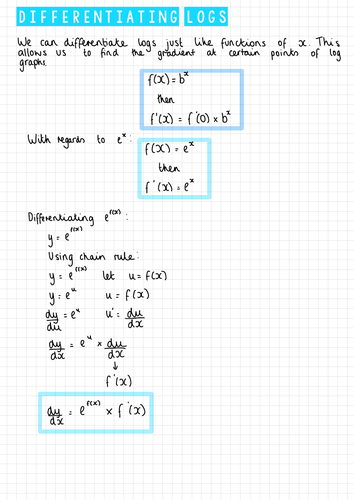 DIFFERENTIATING LOGS
We can differentiate logs just like functions of x. This
allows us to find the gradient at certain points of log
graphs.
f(x) = b^x
then
f'(x) = f'(0) × b^x
With regards to e^x:
f(x) = e^x
then
f'(x) = e^x
Differentiating e^f(x):
y = e^f(x)
Using chain rule:
y = e^f(x) let u = f(x)
y = e^u u = f(x)
dy/du = e^u u' = du/dx
dy/dx = e^u × du/dx
↓
f'(x)
dy/dx = e^f(x) × f'(x)